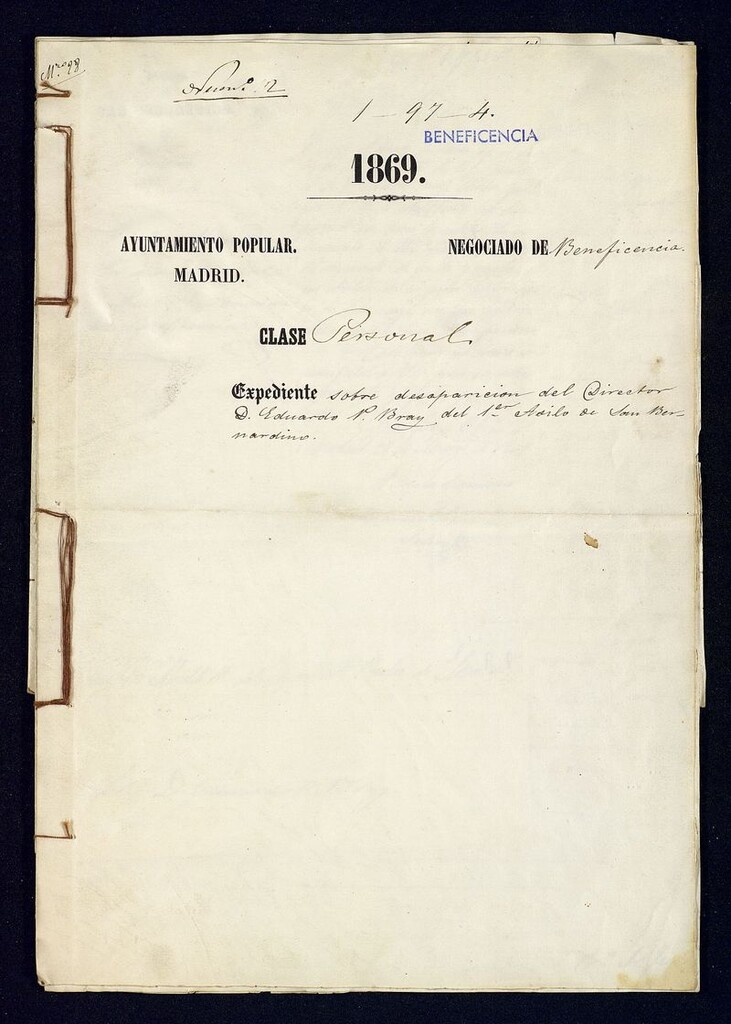 Nro. 98
Num.o 2
1 - 97 - 4.
BENEFICENCIA
1869.
AYUNTAMIENTO POPULAR.
MADRID.
NEGOCIADO DE Beneficencia.
CLASE Personal
Expediente sobre desaparicion del Director
D. Eduardo P. Bray del 1er Asilo de San Ber-
nardino.